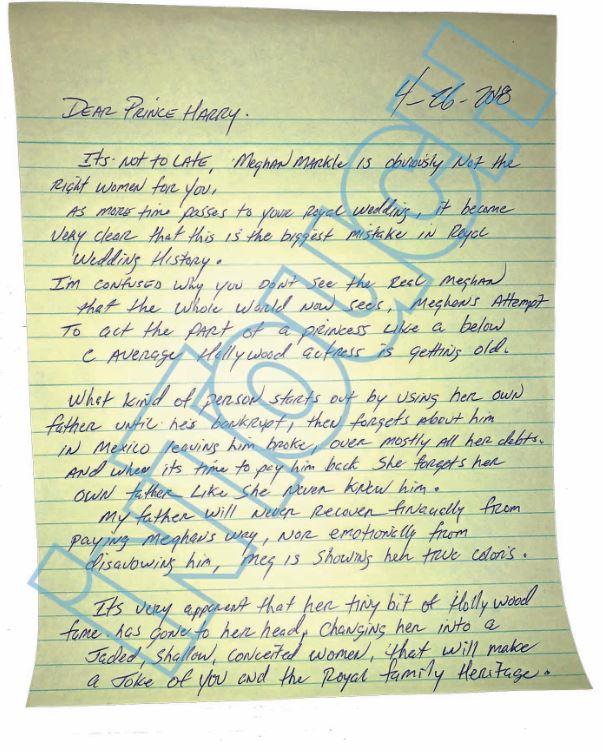 4-26-2018
DEAR PRINCE HARRY.
Its not to LATE, Meghan MARKle is obviously Not the
Right women for you,
As more time passes to your Royal wedding, it became
very clear that this is the biggest mistake in Royal
Wedding History.
Im confused why you Don't see the Real Meghan
that the whole world Now sees, Meghans Attempt
To act the part of a princess Like a below
C Average Hollywood actress is getting old.
What kind of person starts out by using her own
father until he's bankrupt, then forgets about him
in Mexico leaving him broke, over mostly all her debts.
And when its time to pay him back She forgets her
own father Like She Never Knew him.
My father will Never recover financially from
paying Meghans way, Nor emotionally from
disavowing him, Meg is Showing her true colors.
It's very apparent that her tiny bit of Hollywood
fame has gone to her head, Changing her into a
Jaded, Shallow, conceited women, that will make
a Joke of you and the Royal family Heritage.
inTouch